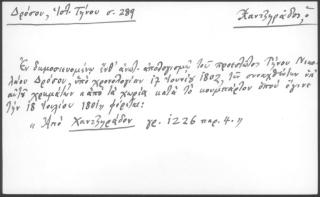 Δρόσου, Ἱστ. Τήνου σ. 289
Χαντζηράδος, ὁ
Ἐν δημοσιευομένῃ ἐνθ' ἀνωτ. ἀπολογισμῷ τοῦ προεστῶτος Τήνου Νικο-
λάου Δρόσου, ὑπὸ χρονολογίαν 17 Ἰουνίου 1802, τῶν συναχθέντων ὑπ'
αὐτοῦ χρημάτων "ἀπὸ τὰ χωρία κατὰ τὸ κουμπάρτον ὁποῦ ἔγινε
τὴν 18 Ἰουλίου 1801, φέρεται:
"Ἀπὸ Χαντζηράδον γρ. 1226 παρ. 4."